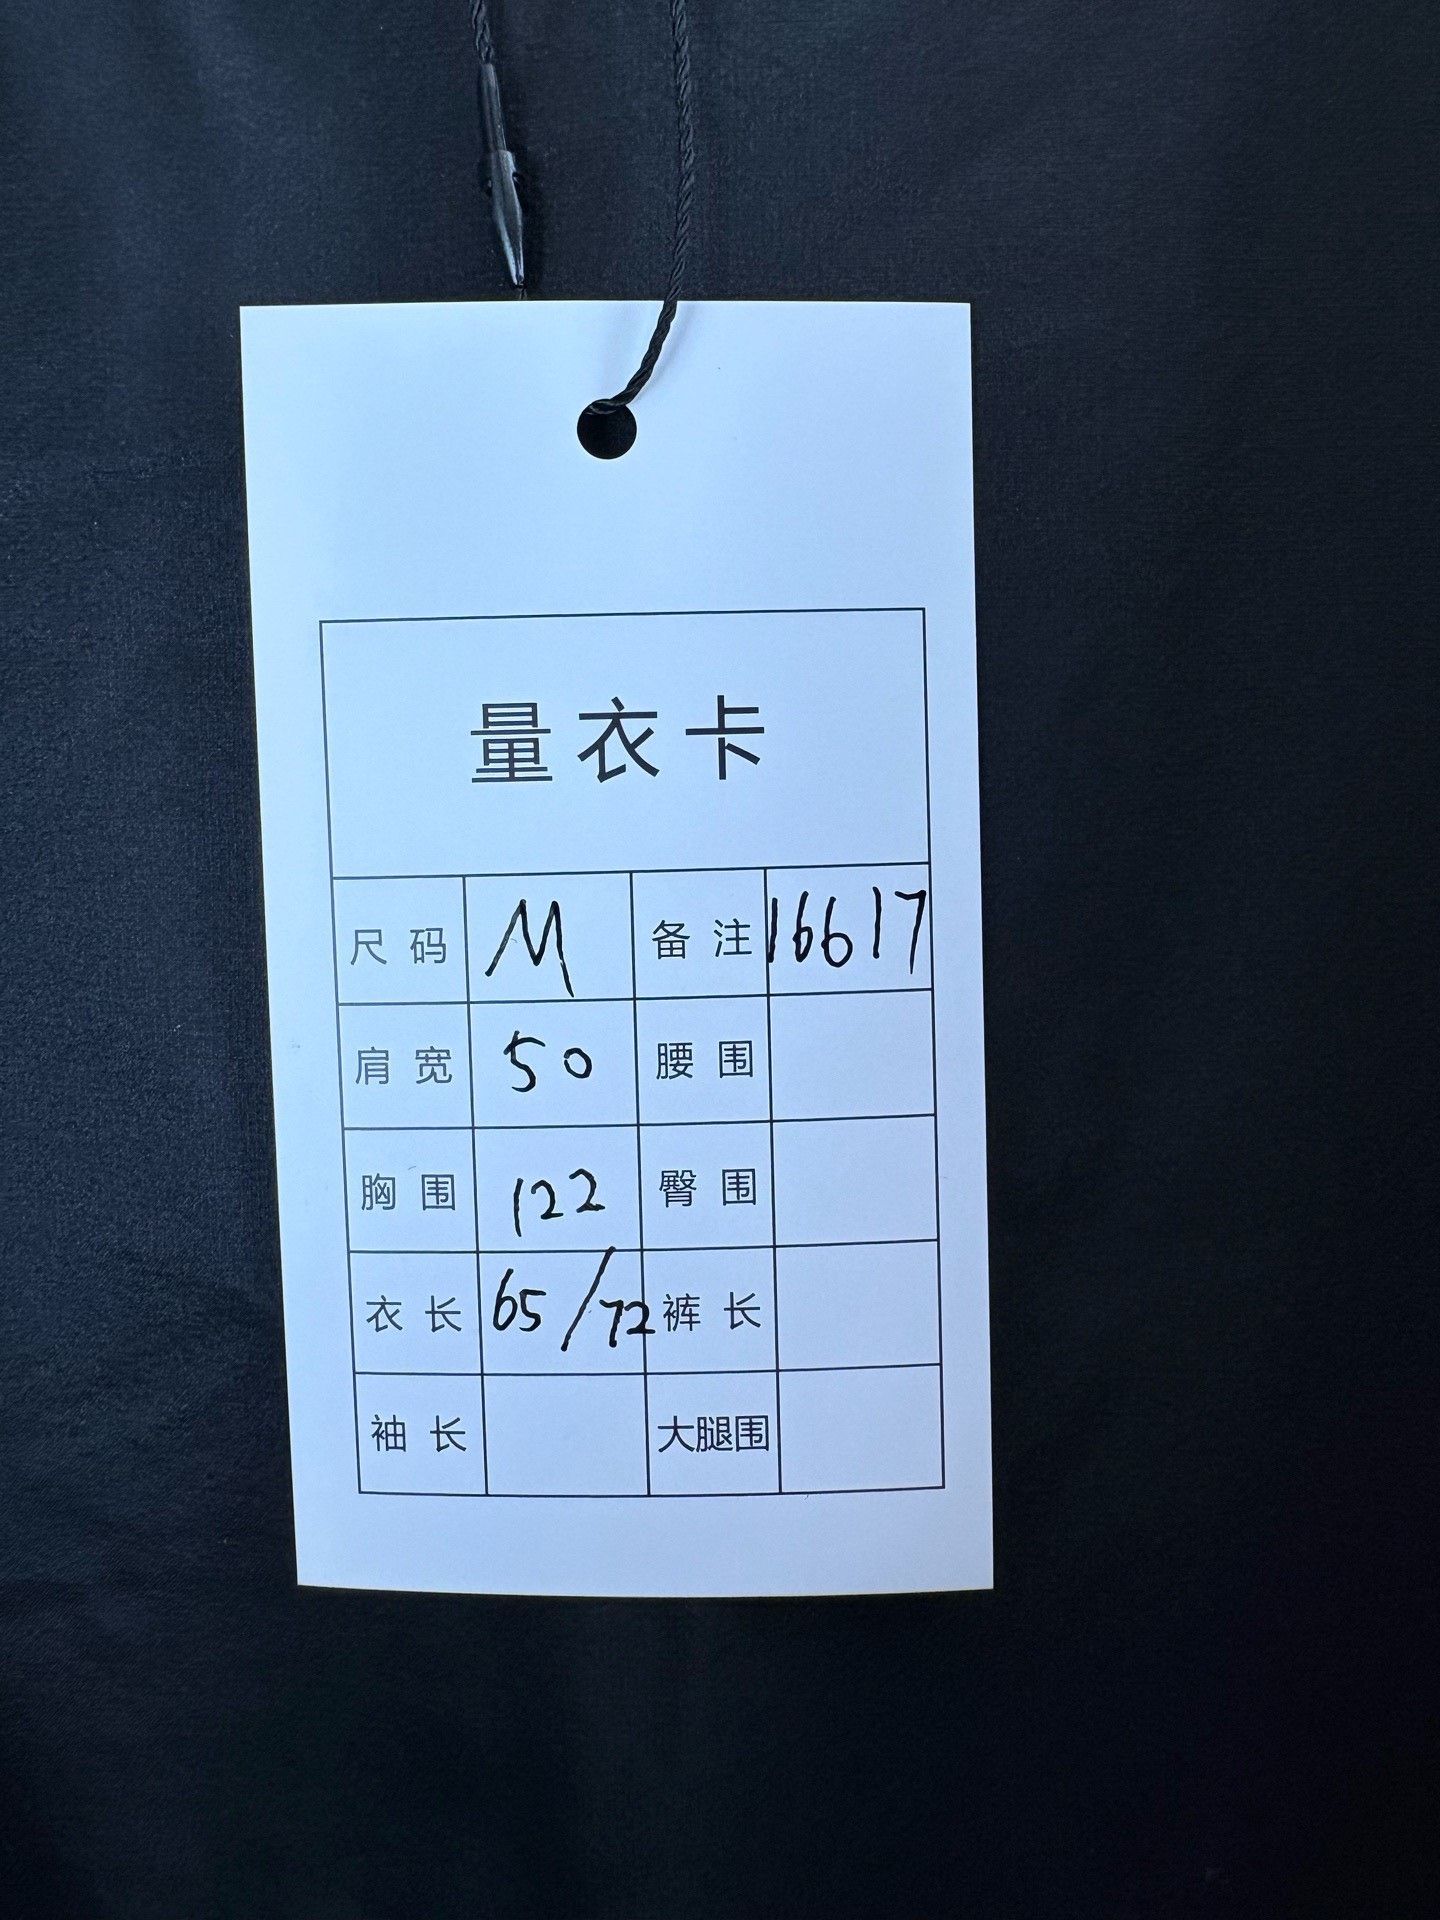 量衣卡
尺码 M 备注 16617
肩宽 50 腰围
胸围 122 臀围
衣长 65/72 裤长
袖长 大腿围